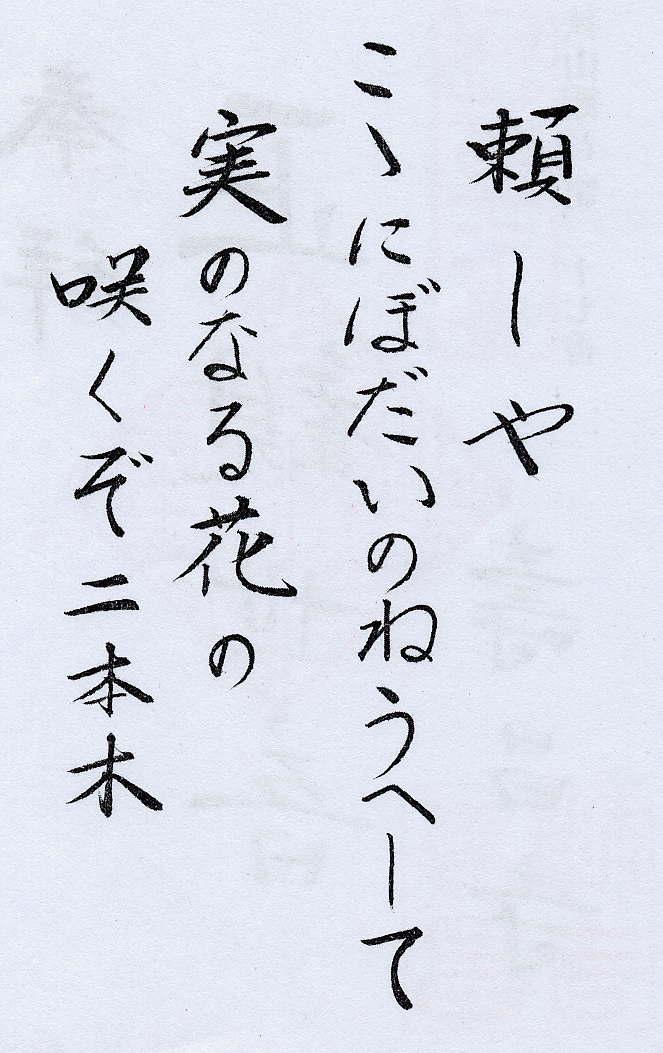 頼しや
こゝにぼだいのねうへして
実のなる花の
咲くぞ二本木